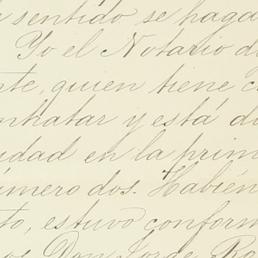 sentido se haga
Yo el Notario d
te, quien tiene c
ntratar y está d
idad en la prim
úmero dos. Habién
to, estuvo conform
os Don Jorge Ro